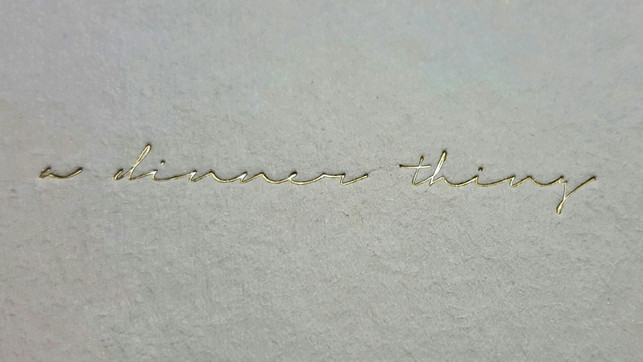 a dinner thing